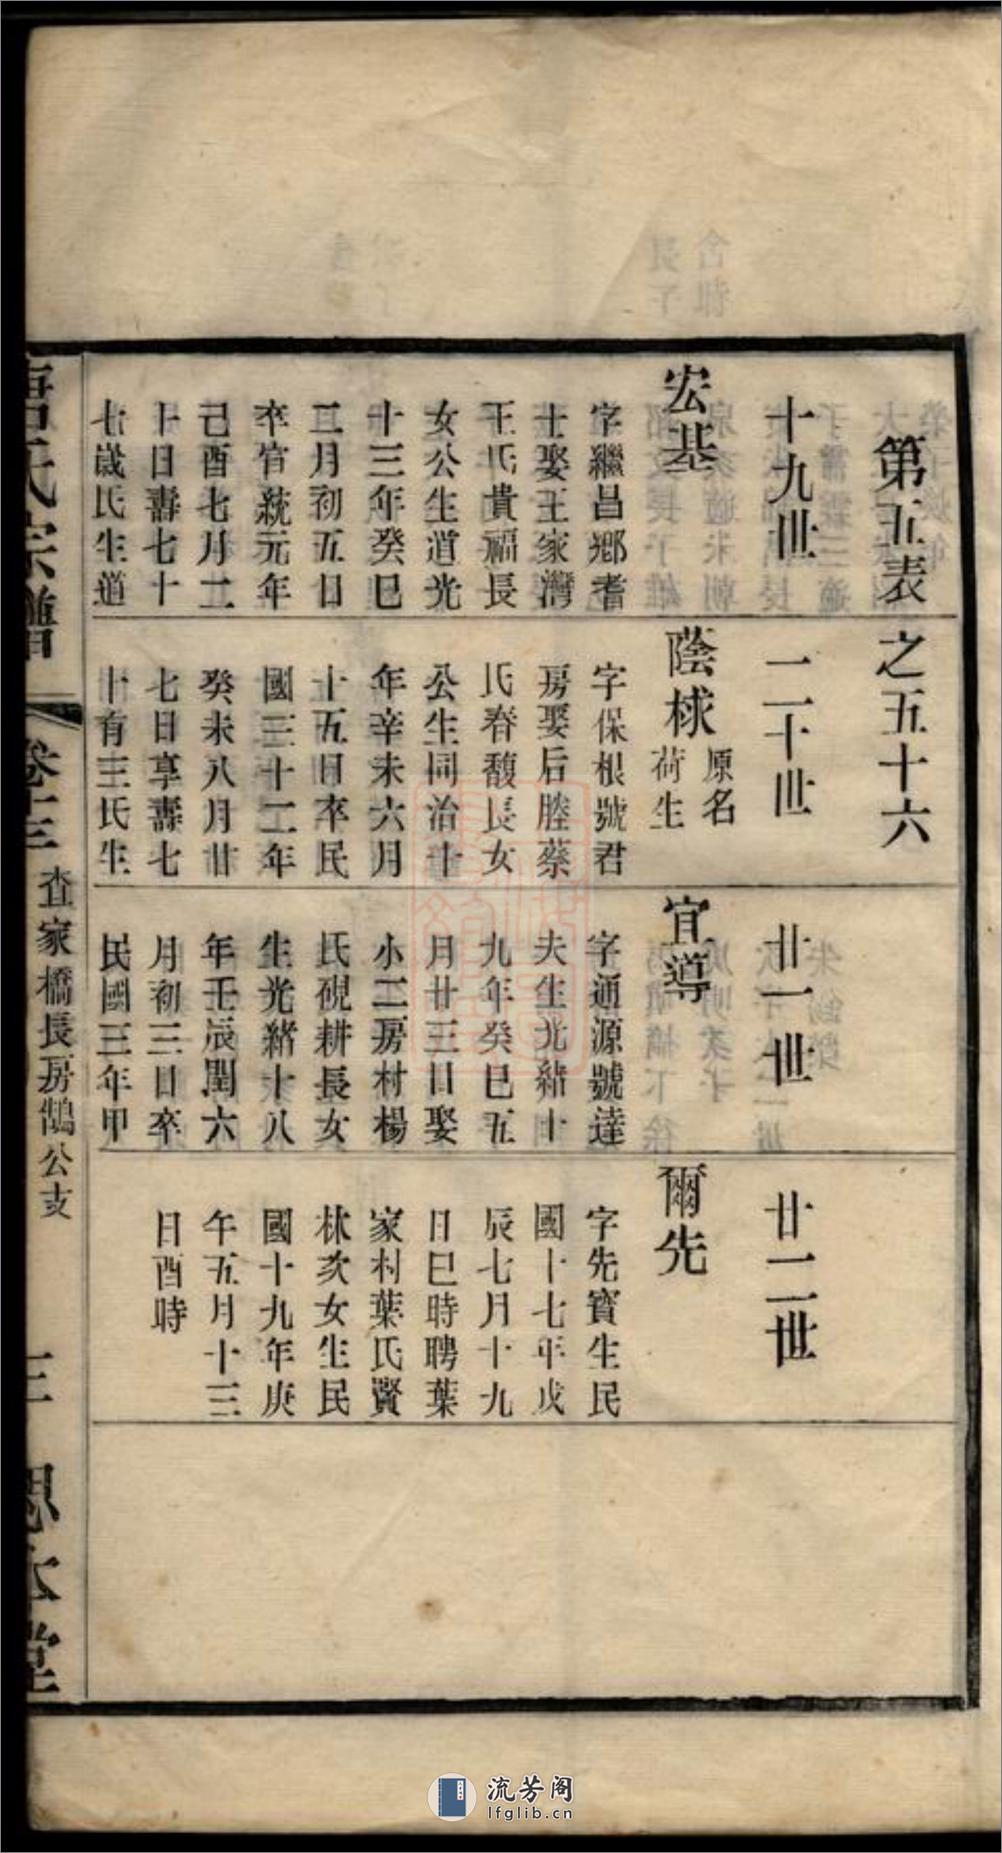 第五表之五十六
十九世
宏基
字繼昌鄉耆
士娶王家灣
王氏貴福長
女公生道光
十三年癸巳
二月初五日
卒宣統元年
己酉七月二
十日壽七十
七歲氏生道
二十世
蔭梂
原名
荷生
字保根號君
房娶后塍蔡
氏春馥長女
公生同治十
年辛未六月
十五日卒民
國三十二年
癸未八月廿
七日享壽七
十有三氏生
廿一世
宜導
字通源號達
夫生光緒十
九年癸巳五
月廿三日娶
小二房村楊
氏硯耕長女
生光緒十八
年壬辰閏六
月初三日卒
民國三年甲
廿二世
爾先
字先寶生民
國十七年戊
辰七月十九
日巳時聘葉
家村葉氏賢
林次女生民
國十九年庚
午五月十三
日酉時
氏宗譜
卷十三
查家橋長房鵠公支
三
思本堂
流芳阁
lfglib.cn